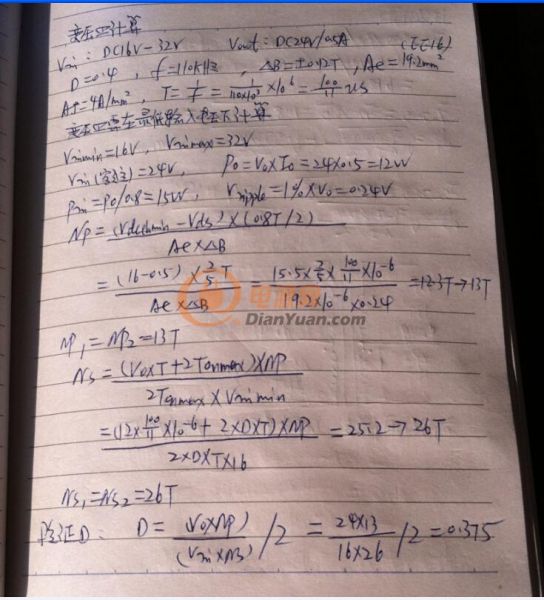 变压器计算
Vin: DC16V-32V Vout: DC24V/0.5A (EE16)
D=0.4, f=110KHz, ΔB=±0.12T, Ae=19.2mm²
AP=4A/mm², T=1/f=1/(110×10³)×10⁶=100/11 us
变压器需在最低输入电压下计算
Vinmin=16V, Vinmax=32V
Vin(额定)=24V, Po=Vo×Io=24×0.5=12W
Pin=Po/0.8=15W, Vripple=1%×Vo=0.24V
Np=(Vdcinmin-Vds)×(0.8T/2)
Ae×ΔB
=(16-0.5)×2/5T / Ae×ΔB = 15.5×2/5×100/11×10⁻⁶ / 19.2×10⁻⁶×0.24 =12.3T→13T
电源网
DianYuan.com
NP₁=NP₂=13T
Ns=(Vo×T+2Tonmax)×NP
2Tonmax×Vinmin
=(12×100/11×10⁻⁶+2×D×T)×NP / 2×D×T×16 =25.2→26T
Ns₁=Ns₂=26T
验证D: D=(Vo×NP)/(Vin×NS)/2 = 24×13/16×26/2=0.375